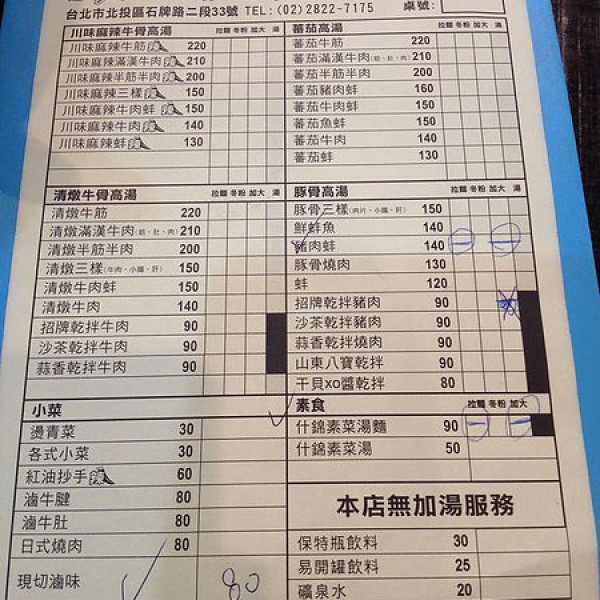 台北市北投區石牌路二段33號 TEL:(02)2822-7175 桌號:
川味麻辣牛骨高湯 拉麵 冬粉 加大 湯
川味麻辣牛筋 220
川味麻辣滿漢牛肉 210
川味麻辣半筋半肉 200
川味麻辣三樣 150
川味麻辣牛肉蚌 150
川味麻辣牛肉 140
川味麻辣蚌 130
蕃茄高湯 拉麵 冬粉 加大 湯
蕃茄牛筋 220
蕃茄滿漢牛肉(筋、肚、肉) 210
蕃茄半筋半肉 200
蕃茄豬肉蚌 160
蕃茄牛肉蚌 150
蕃茄魚蚌 150
蕃茄牛肉 140
蕃茄蚌 130
清燉牛骨高湯 拉麵 冬粉 加大 湯
清燉牛筋 220
清燉滿漢牛肉(筋、肚、肉) 210
清燉半筋半肉 200
清燉三樣(牛肉、小腸、肝) 150
清燉牛肉蚌 150
清燉牛肉 140
招牌乾拌牛肉 90
沙茶乾拌牛肉 90
蒜香乾拌牛肉 90
豚骨高湯 拉麵 冬粉 加大 湯
豚骨三樣(肉片、小腸、肝) 150
鮮蚌魚 140
豬肉蚌 140
豚骨燒肉 130
蚌 120
招牌乾拌豬肉 90
沙茶乾拌豬肉 90
蒜香乾拌燒肉 90
山東八寶乾拌 90
干貝xo醬乾拌 80
小菜
燙青菜 30
各式小菜 30
紅油抄手 60
滷牛腱 80
滷牛肚 80
日式燒肉 80
現切滷味 80
素食 拉麵 冬粉 加大
什錦素菜湯麵 90
什錦素菜湯 50
本店無加湯服務
保特瓶飲料 30
易開罐飲料 25
礦泉水 20